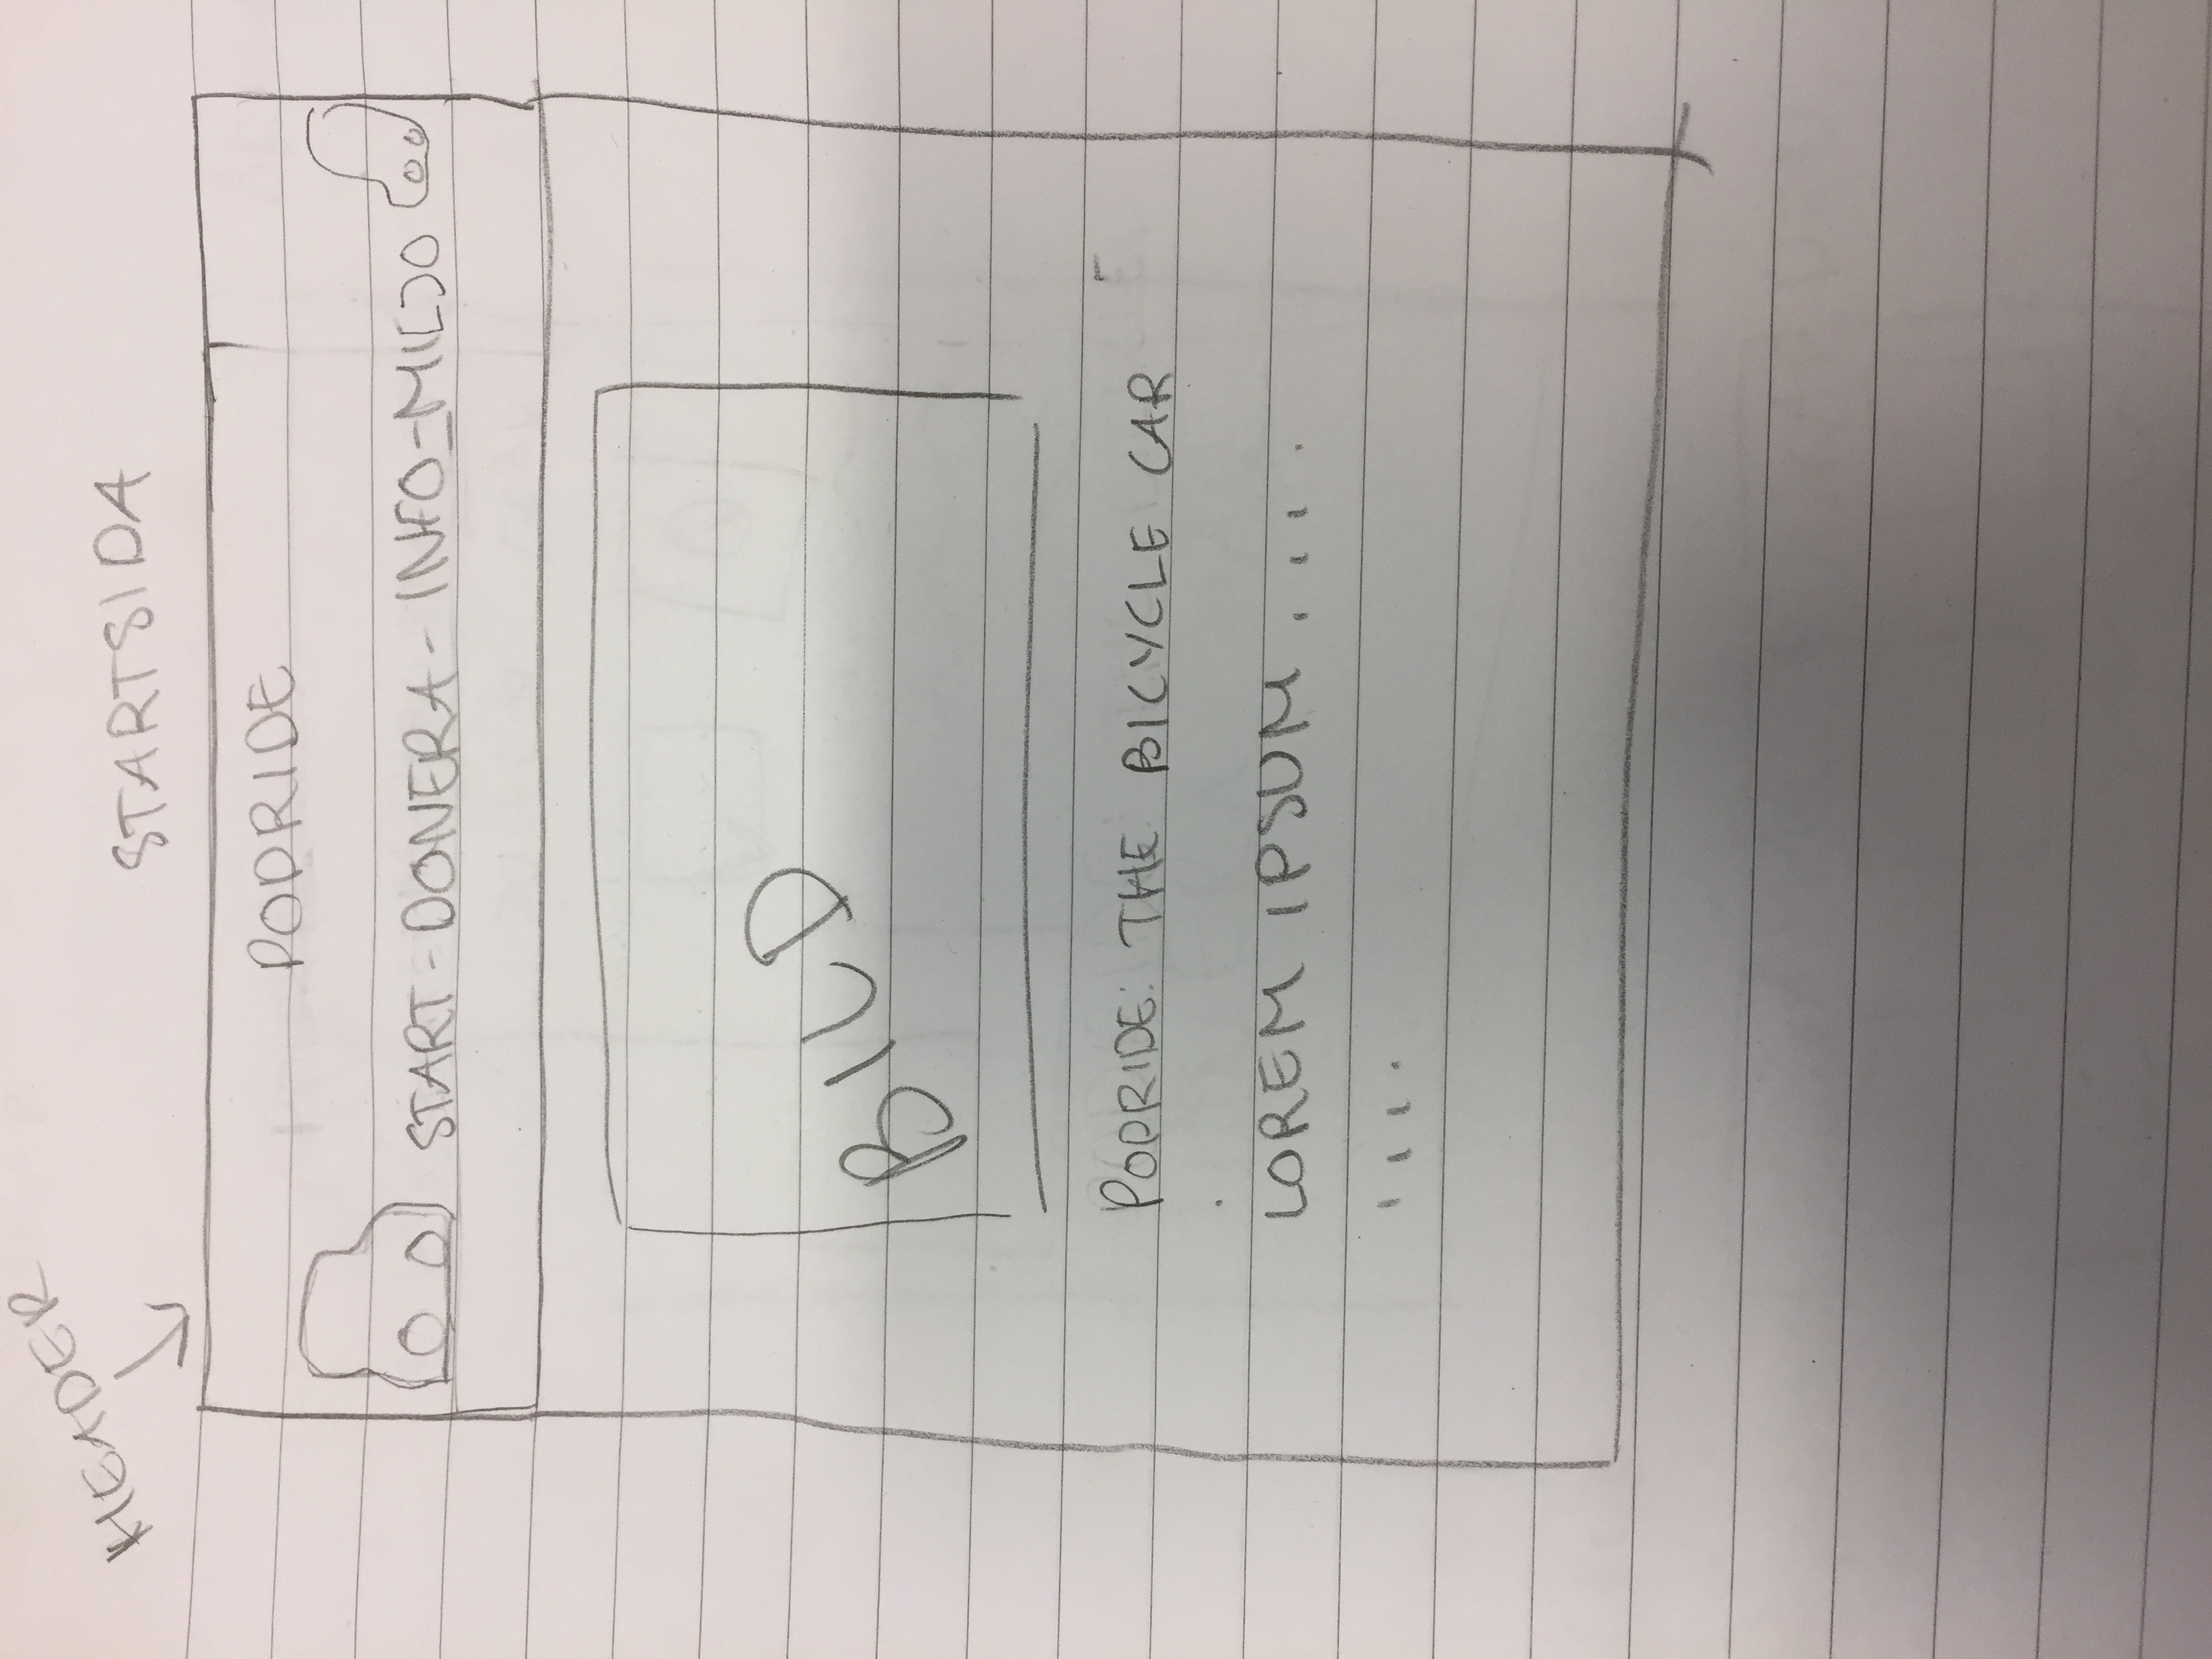 HEADER
STARTSIDA
PODRIDE
START - DONERA - INFO - MILJO
BILD
PODRIDE: THE BICYCLE CAR
LOREM IPSUM . . . .
. . . .